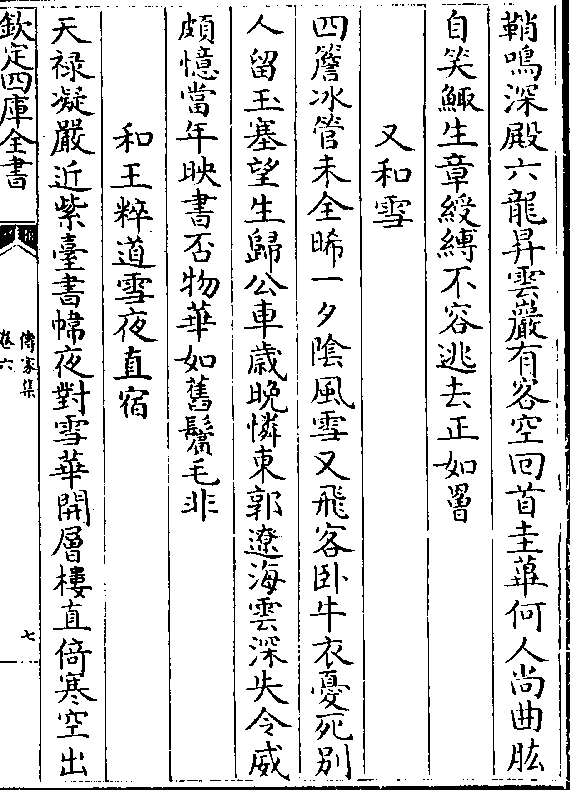 鞘鳴深殿六龍昇雲巖有客空回首圭蓽何人尚曲肱
自笑鯫生章綬縛不容逃去正如罾
又和雪
四簷冰管未全晞一夕陰風雪又飛客卧牛衣憂死别
人留玉塞望生歸公車歲晩憐東郭遼海雲深失令威
頗憶當年映書否物華如舊鬢毛非
和王粹道雪夜直宿
天禄凝嚴近紫臺書幃夜對雪華開層樓直倚寒空出
欽定四庫全書
傳家集
卷六
七